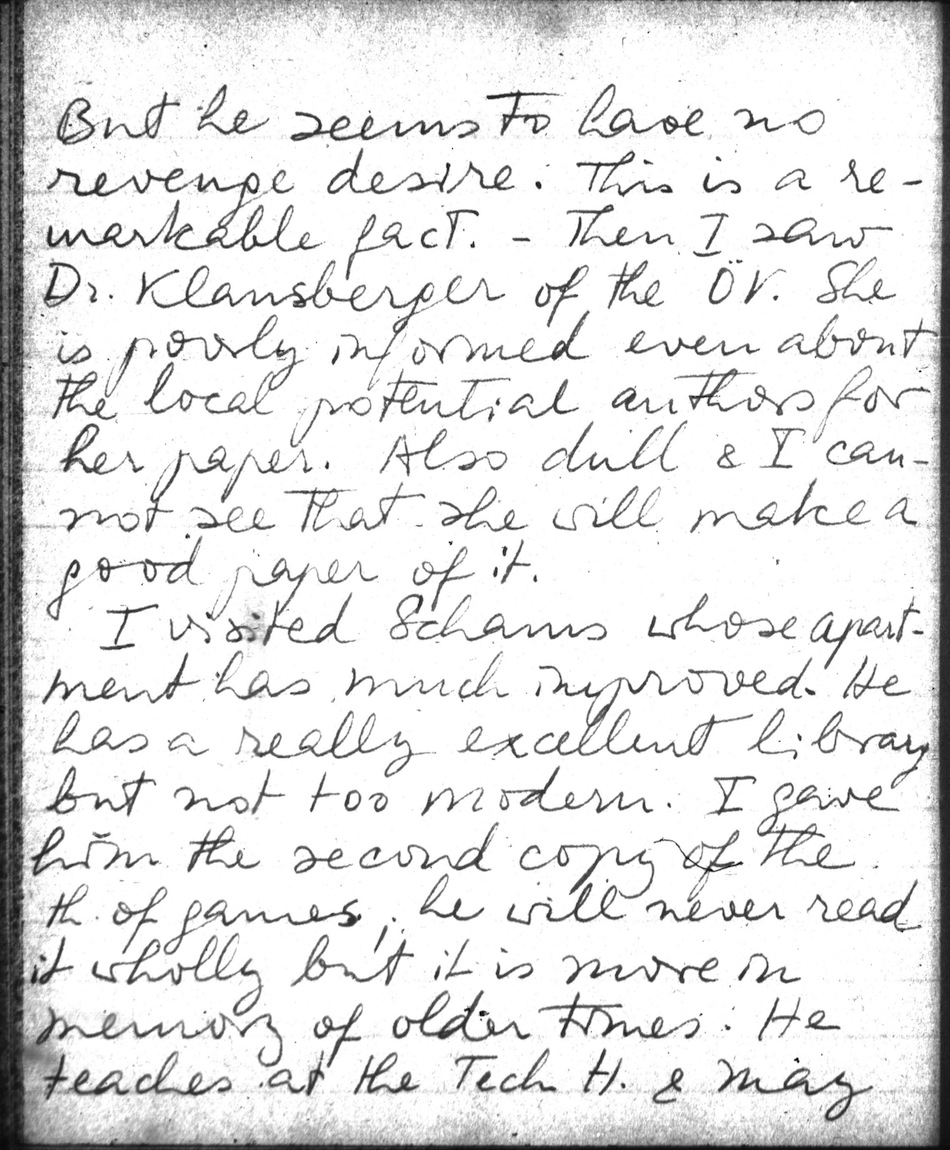 But he seems to have no
revenge desire. This is a re-
markable fact. - Then I saw
Dr. Klausberger of the ÖV. She
is poorly informed even about
the local potential authors for
her paper. Also dull & I can-
not see that she will make a
good paper of it.
I visited Schams whose apart-
ment has much improved. He
has a really excellent library
but not too modern. I gave
him the second copy of the
th. of games; he will never read
it wholly but it is more in
memory of older times. He
teaches at the Tech H. & may